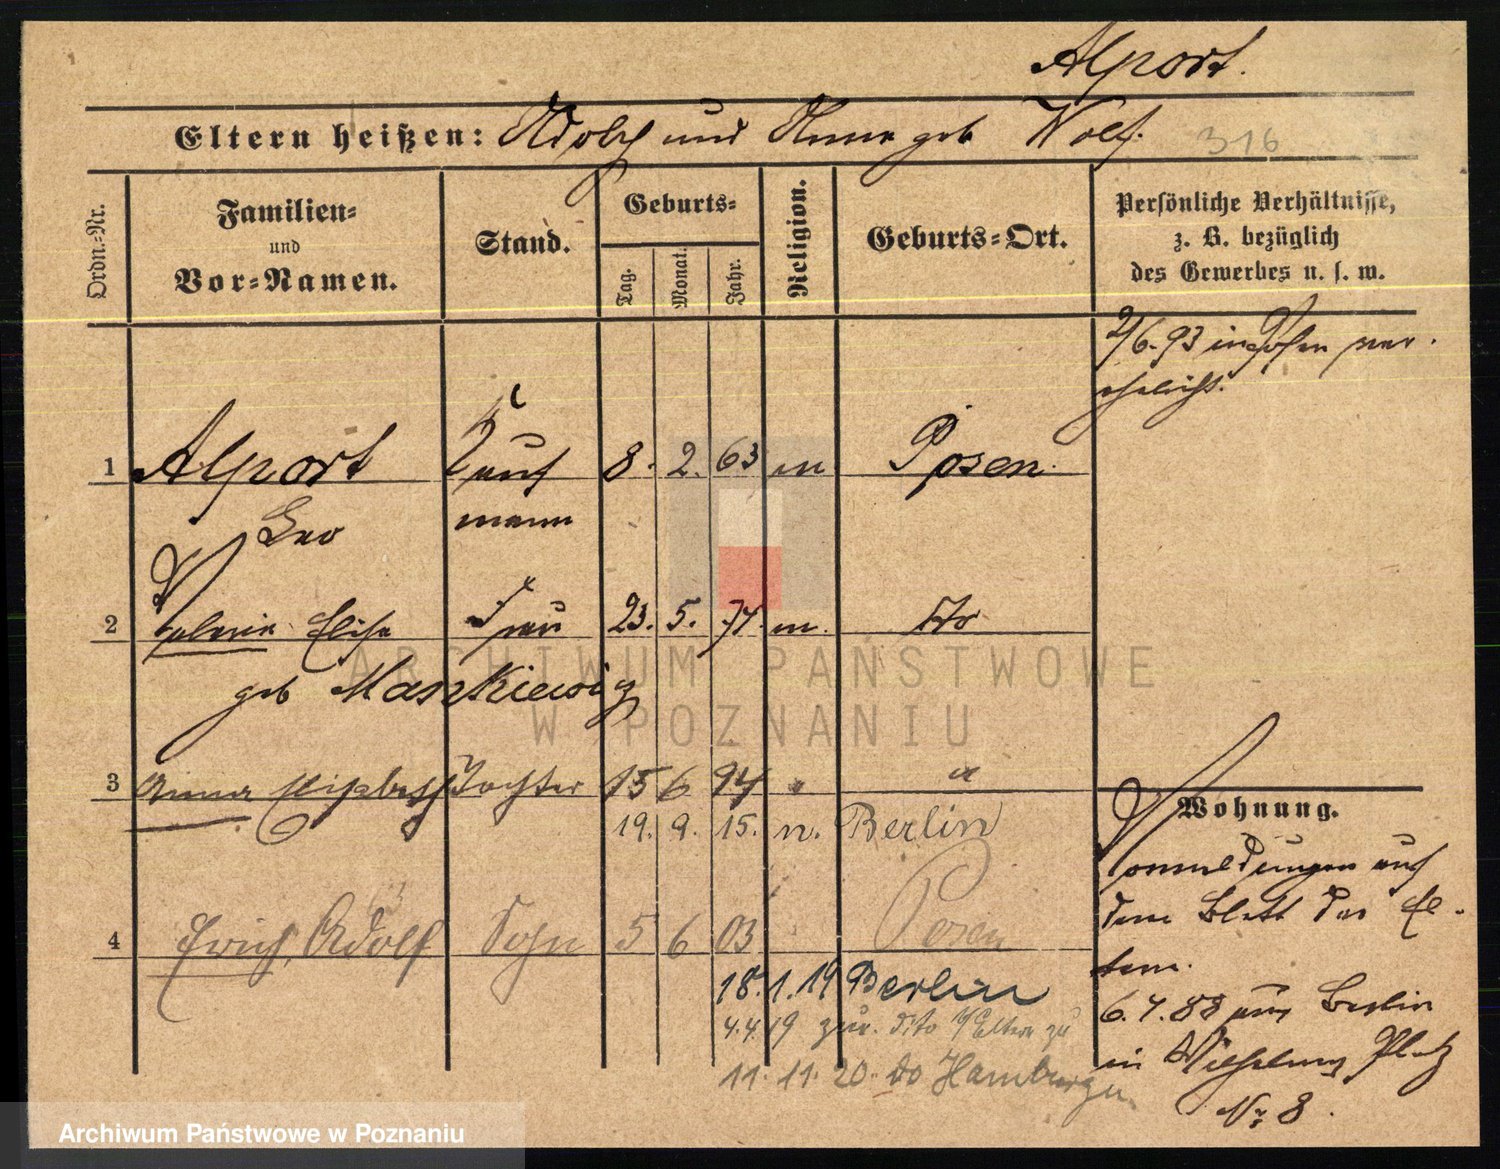 Alport.
Eltern heißen: Adolf und Anna geb Wolf.
316
Ordn.-Nr.
Familien-
und
Vor-Namen.
Stand.
Geburts-
Tag. Monat. Jahr.
Religion.
Geburts-Ort.
Persönliche Verhältnisse,
z. B. bezüglich
des Gewerbes u. s. w.
2/6.93 in Posen ver-
ehelicht.
1 Alport Kauf 8. 2. 63 m Posen.
Leo mann
2 Valerie Elise Frau 23. 5. 74. m. dto
geb Mankiewicz
3 Anna Elisabeth Tochter 15 6 94 " "
19. 9. 15. n. Berlin
4 Erich, Adolf Sohn 5 6 03 Posen
18.1.19 Berlin
4.4.19 zur. dito Eltern zu
11.11.20 do Hamburg
Wohnung.
Vormeldungen auf
dem Blatt der El-
tern.
6.4.88 aus Berlin
in Wilhelms Platz
No 8.
ARCHIWUM PAŃSTWOWE
W POZNANIU
Archiwum Państwowe w Poznaniu